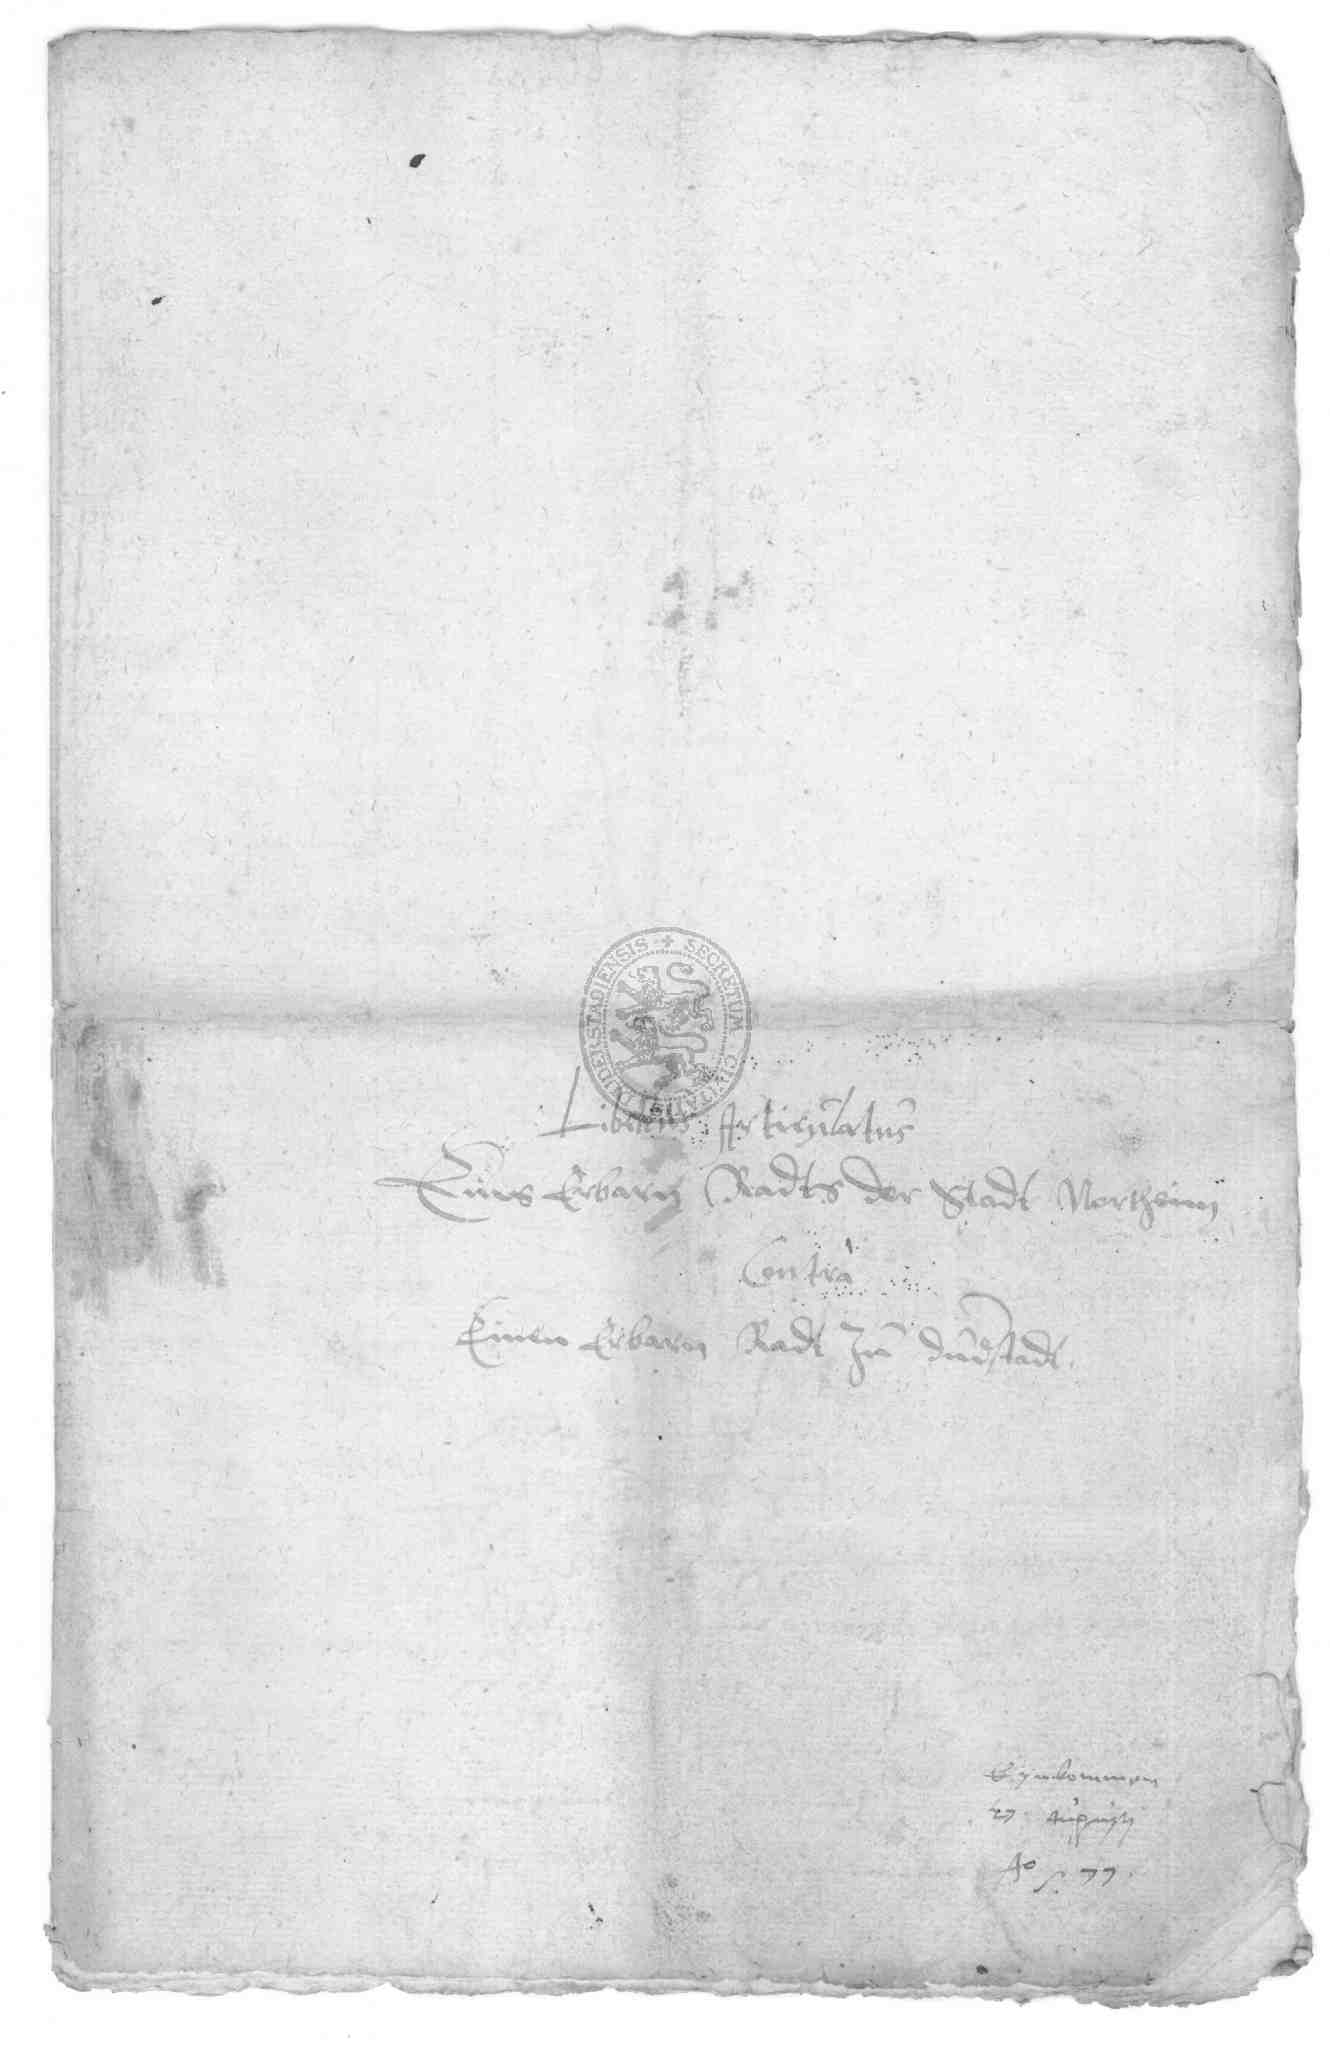 SECRETUM CIVITATIS DUDERSTADIENSIS
Libellus Articulatus
Eins Erbarn Radts der Stadt Northeim
Contra
Einen Erbarn Radt zu duderstadt.
Eynkommen
27 Augusti
Ao 77.